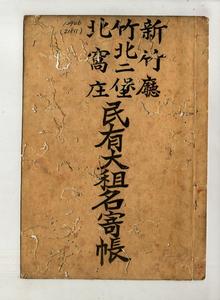 新竹廳
竹北二堡
北窩庄
民有大租名寄帳